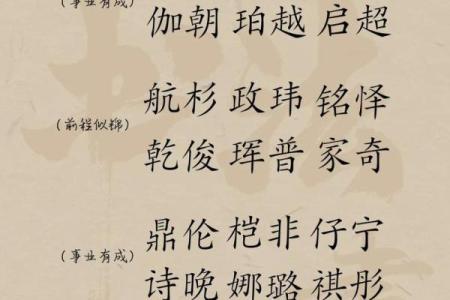 (事业有成)
伽朝 珀越 启超
航杉 政玮 铭怿
(前程似锦)
乾俊 珲普 家奇
鼎伦 桤非 仔宁
(事业有成)
诗晚 娜璐 祺彤